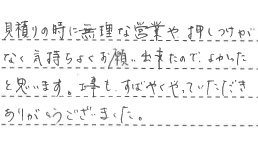 見積りの時に無理な営業や押しつけが
なく気持ちよくお願い出来たのでよかった
と思います。工事も、すばやくやっていただき
ありがとうございました。